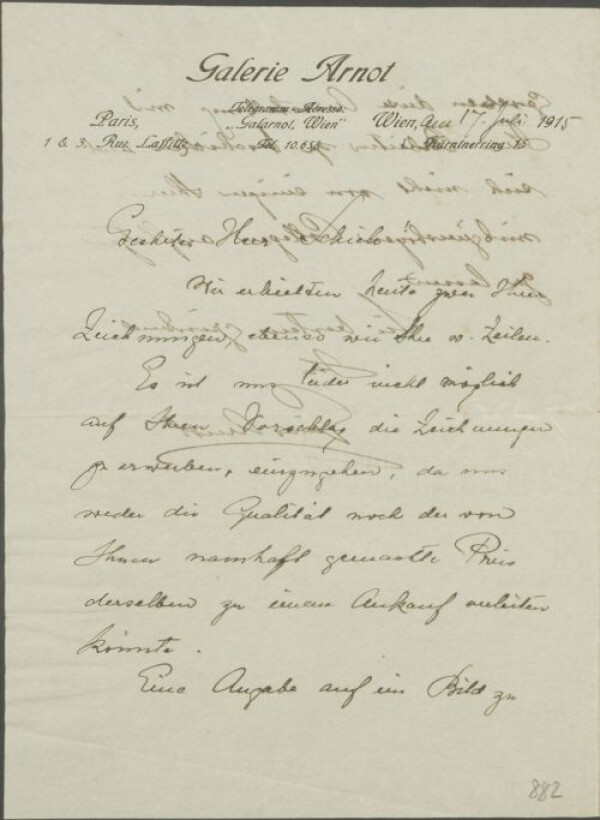 Galerie Arnot
Telegramm-Adresse:
Paris, "Galarnot, Wien" Wien, am 17. Juli 1915
1 & 3. Rue Laffitte Tel. 10.656 Kärntnerring 15
Geehrter Herr Schiele!
Wir erhielten heute zwei Ihrer
Zeichnungen ebenso wie Ihre w. Zeilen.
Es ist uns leider nicht möglich
auf Ihren Vorschlag die Zeichnungen
zu erwerben, einzugehen, da uns
weder die Qualität noch der von
Ihnen namhaft gemachte Preis
derselben zu einem Ankauf verleiten
könnte.
Eine Angabe auf ein Bild zu
882